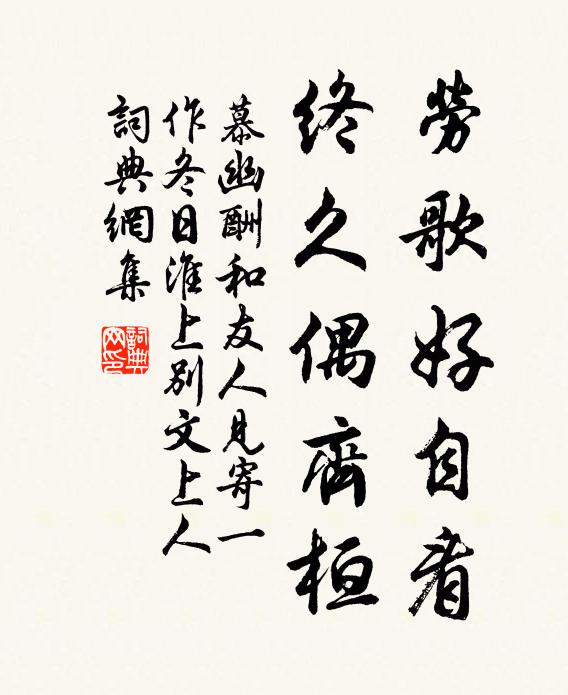 勞歌好自看
終久偶齊桓
慕幽酬和友人見寄一
作冬日淮上別文上人
詞典網集
詞典網印